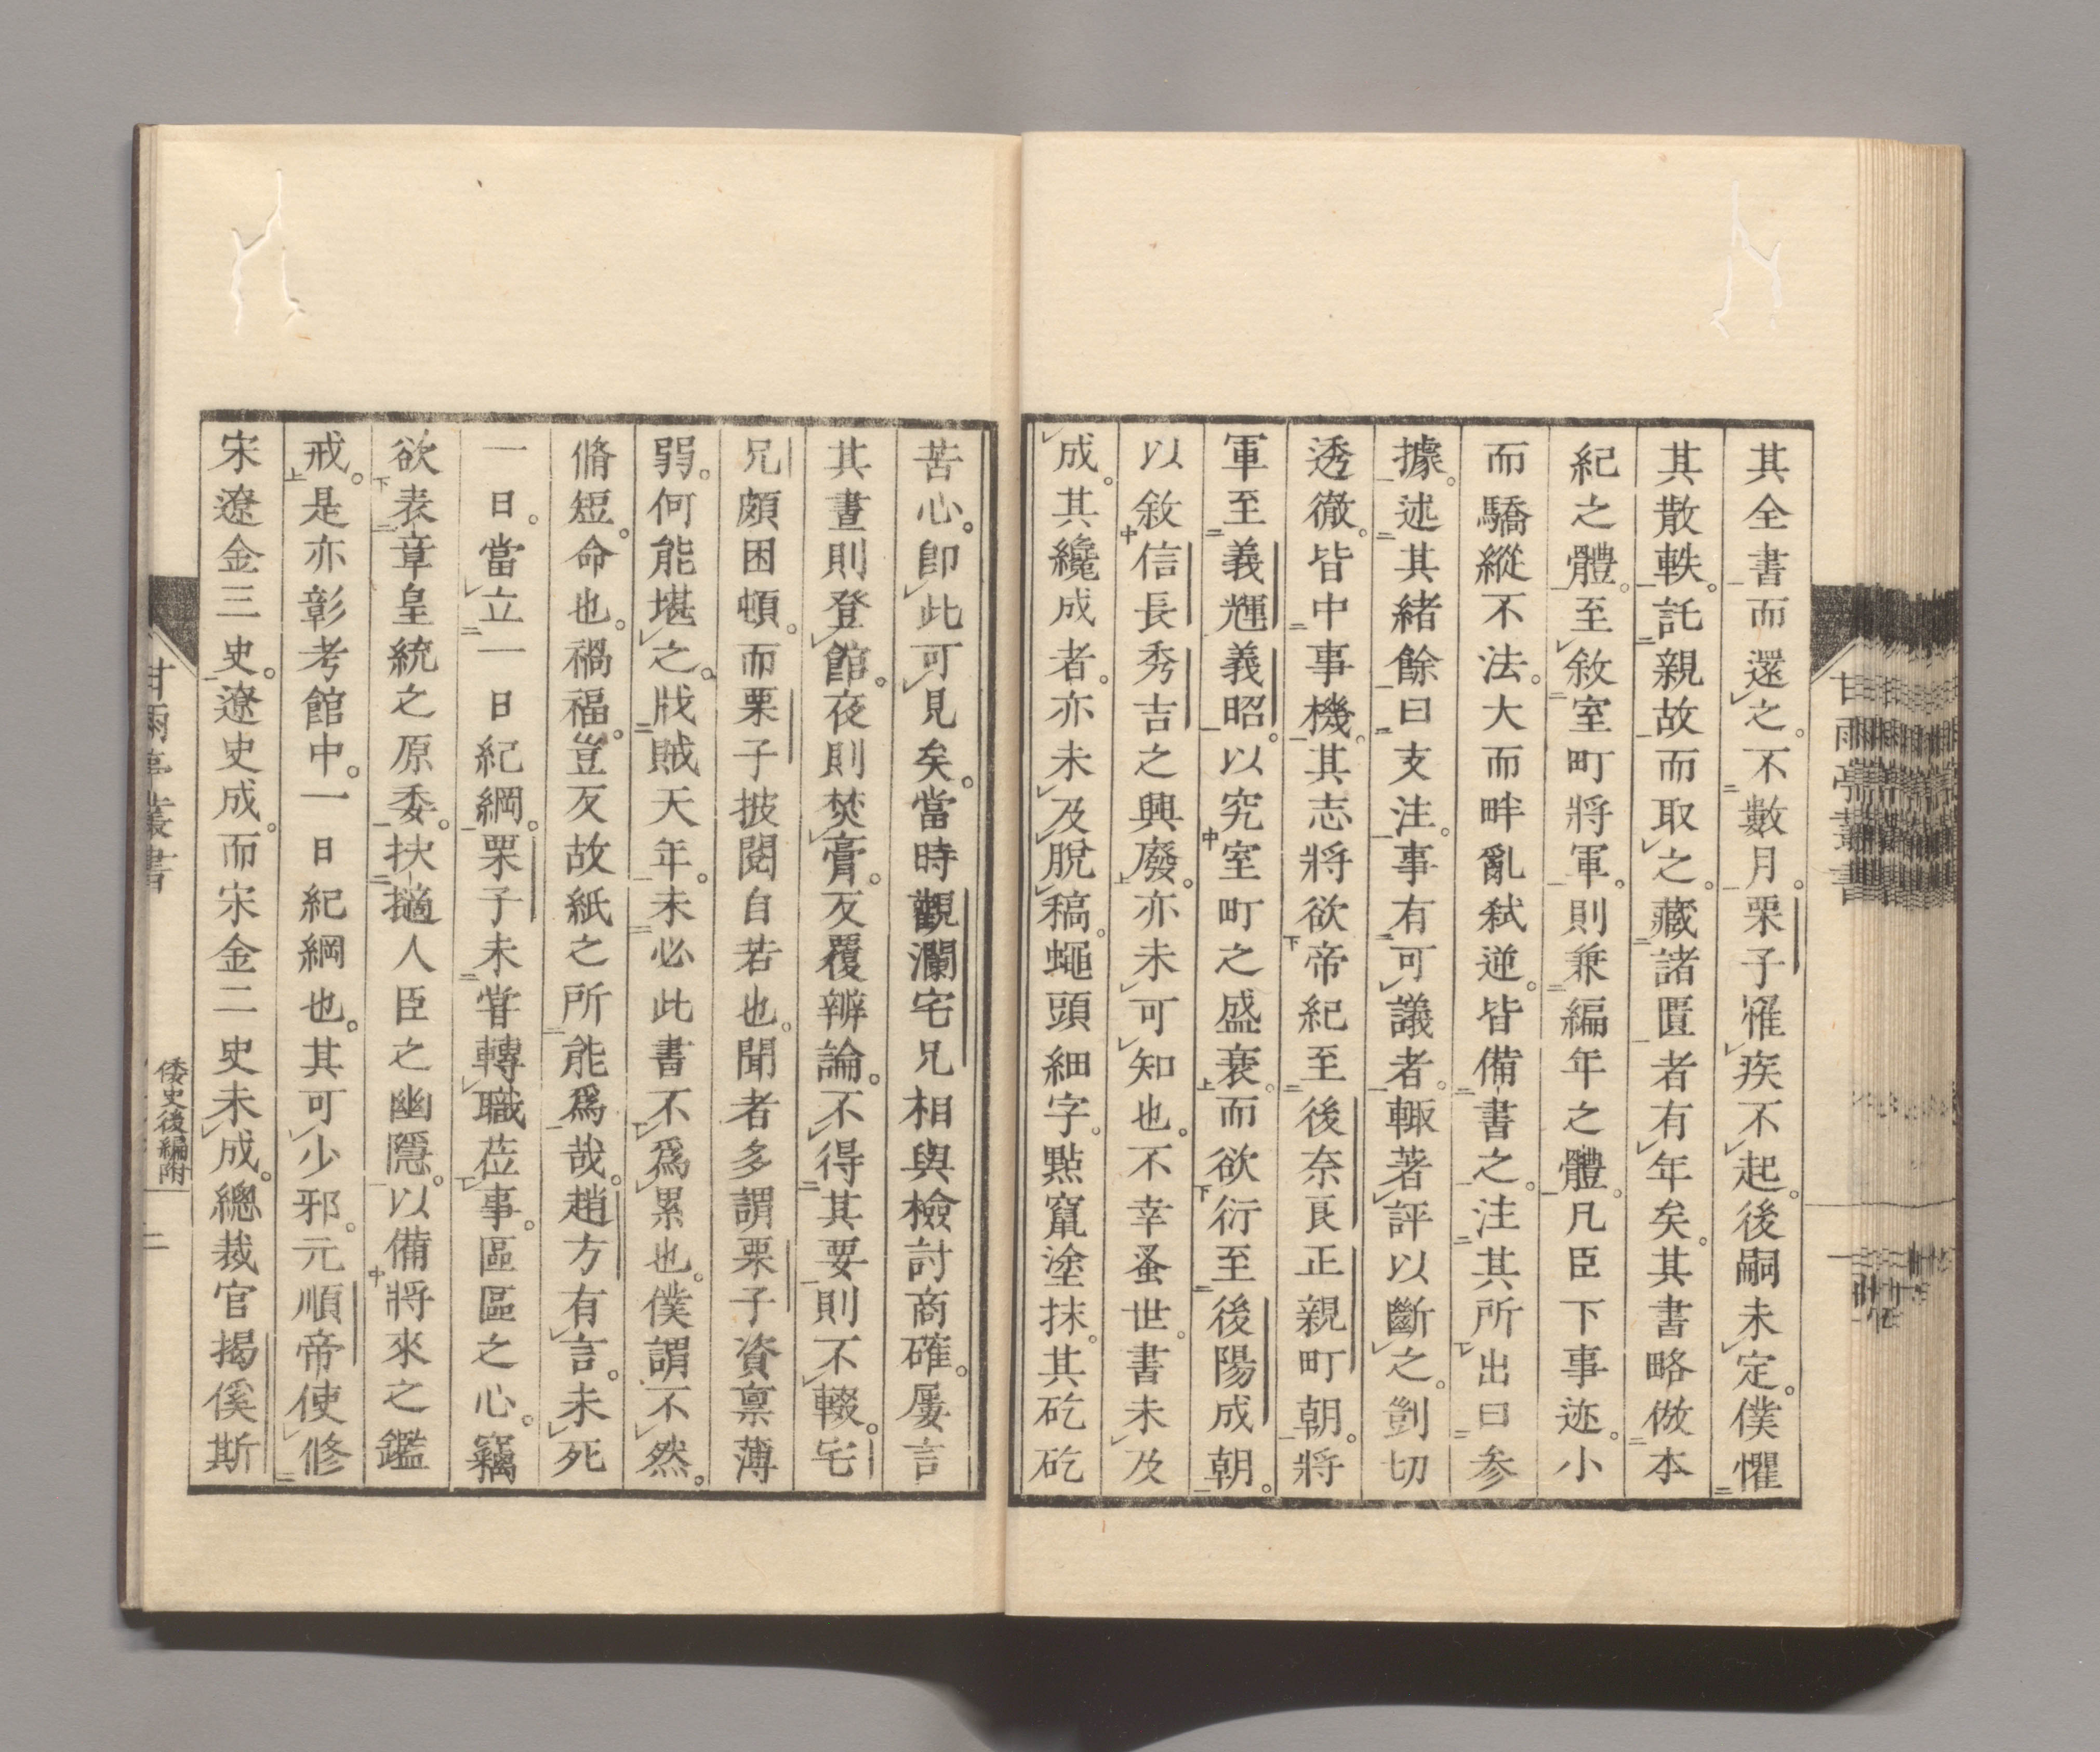 其全書而還之。不數月。栗子罹疾不起。後嗣未定。僕懼
其散軼。託親故而取之。藏諸匱者有年矣。其書略倣本
紀之體。至敘室町將軍。則兼編年之體。凡臣下事迹。小
而驕縱不法。大而畔亂弑逆。皆備書之。注其所出曰參
據。述其緒餘曰支注。事有可議者。輙著評以斷之。剴切
透徹。皆中事機。其志將欲帝紀至後奈良正親町朝。將
軍至義輝義昭。以究室町之盛衰。而欲衍至後陽成朝。
以敘信長秀吉之興廢。亦未可知也。不幸蚤世。書未及
成。其纔成者。亦未及脫稿。蠅頭細字。點竄塗抹。其矻矻
苦心。卽此可見矣。當時觀瀾宅兄相與檢討商確。屢言
其晝則登館。夜則焚膏。反覆辨論。不得其要。則不輟。宅
兄頗困頓。而栗子披閱自若也。聞者多謂栗子資稟薄
弱。何能堪之。戕賊天年。未必此書不爲累也。僕謂不然。
脩短。命也。禍福。豈反故紙之所能爲哉。趙方有言。未死
一日。當立一日紀綱。栗子未嘗轉職莅事。區區之心。竊
欲表章皇統之原委。抉擿人臣之幽隱。以備將來之鑑
戒。是亦彰考館中。一日紀綱也。其可少邪。元順帝使修
宋遼金三史。遼史成。而宋金二史未成。總裁官揭傒斯
甘雨亭叢書
倭史後編附
二
甘雨亭叢書